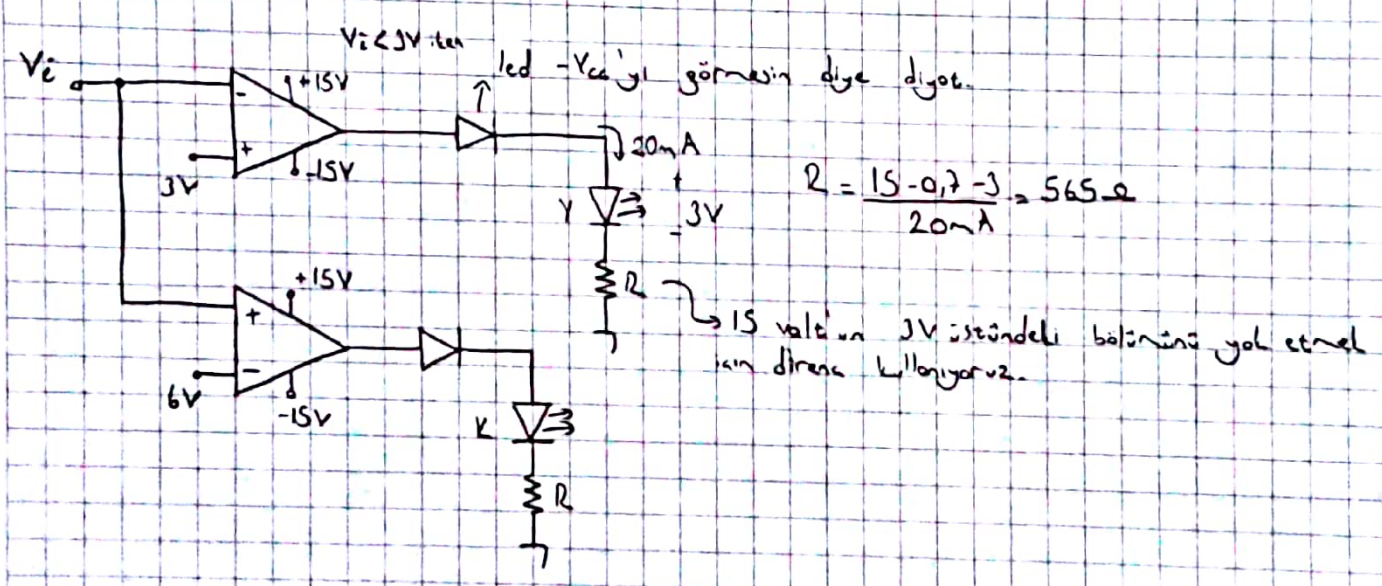 Vi<3V iken
led -Vcc'yi görmesin diye diyot.
Vi
+15V
-
+
3V
-15V
20mA
Y
+
3V
-
R
R = 15-0,7-3 / 20mA = 565Ω
15 volt'un 3V üstündeki bölümünü yok etmek
için direnç kullanıyoruz.
+15V
+
-
6V
-15V
K
R